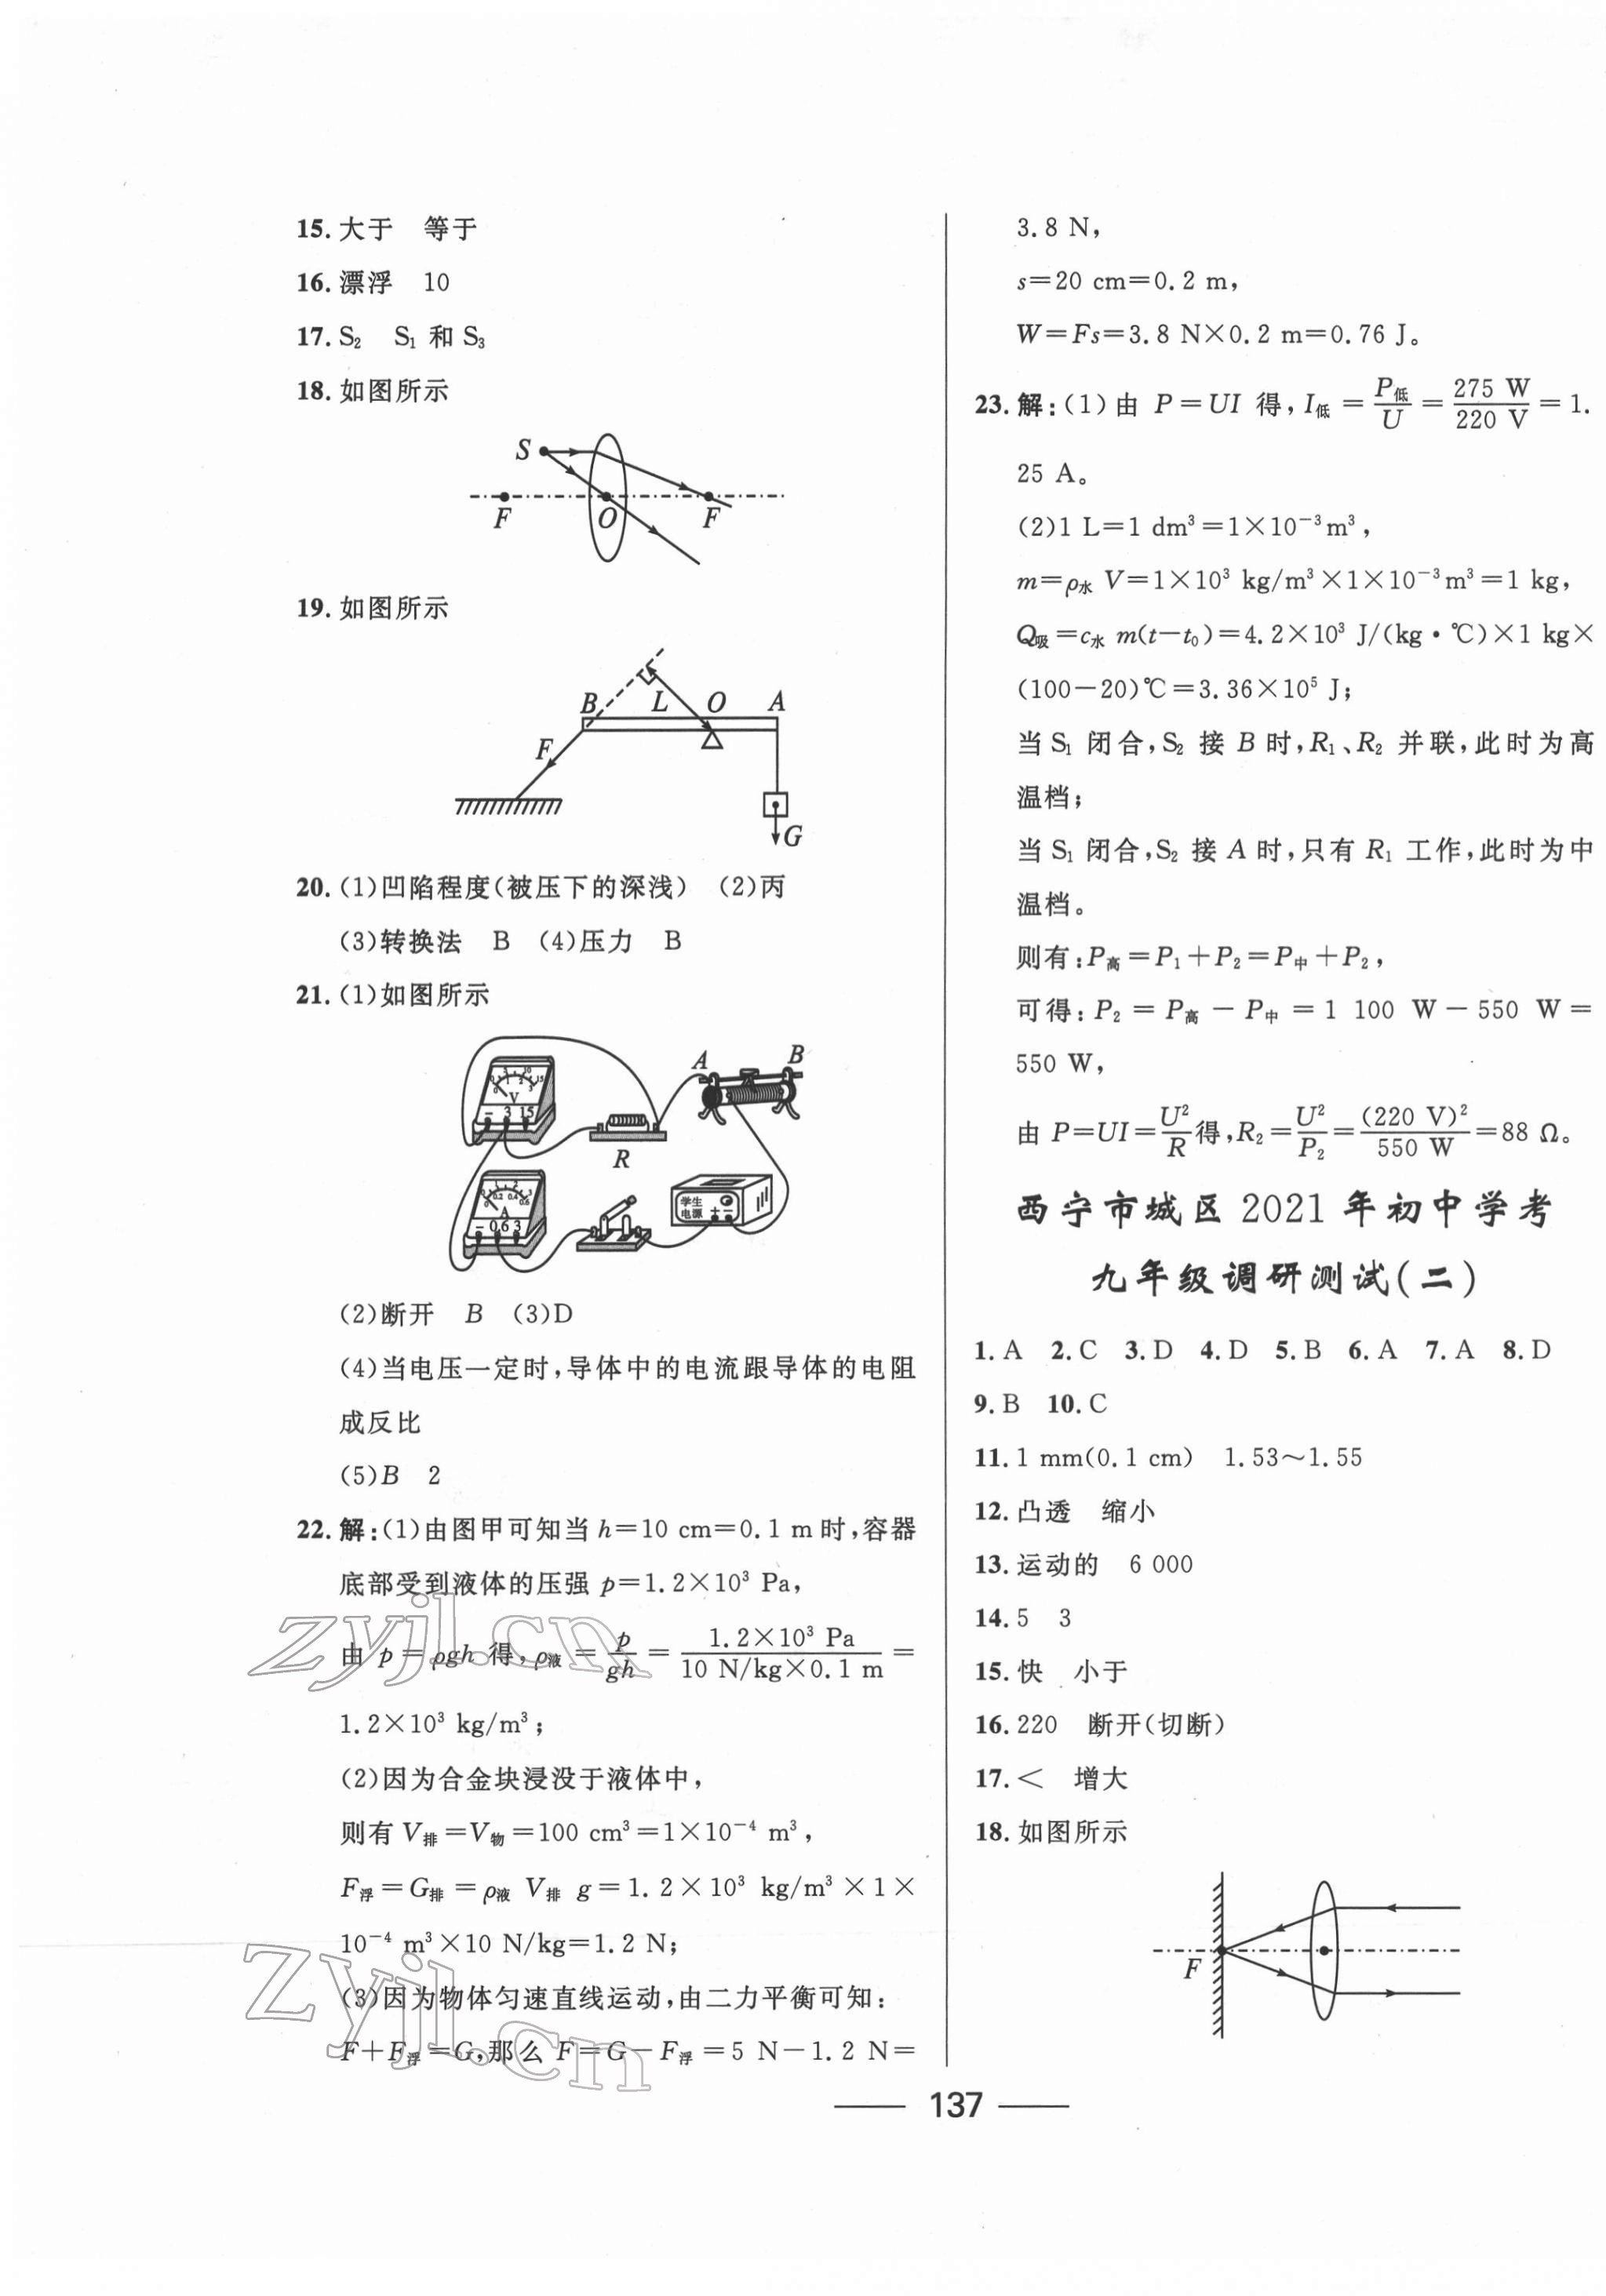 15. 大于　等于
16. 漂浮　10
17. S₂　S₁ 和 S₃
18. 如图所示
S
F
O
F
19. 如图所示
B
L
O
A
F
G
20. (1)凹陷程度(被压下的深浅)　(2)丙
(3)转换法　B　(4)压力　B
21. (1)如图所示
A
B
V
- 3 15
R
学生
电源
+ -
A
- 0.6 3
(2)断开　B　(3)D
(4)当电压一定时,导体中的电流跟导体的电阻
成反比
(5)B　2
22. 解:(1)由图甲可知当 h=10 cm=0.1 m时,容器
底部受到液体的压强 p=1.2×10³ Pa,
由 p=ρgh 得,ρ液=p/gh=1.2×10³ Pa/10 N/kg×0.1 m=
1.2×10³ kg/m³;
(2)因为合金块浸没于液体中,
则有V排=V物=100 cm³=1×10⁻⁴ m³,
F浮=G排=ρ液 V排 g=1.2×10³ kg/m³×1×
10⁻⁴ m³×10 N/kg=1.2 N;
(3)因为物体匀速直线运动,由二力平衡可知:
F+F浮=G,那么 F=G-F浮=5 N-1.2 N=
3.8 N,
s=20 cm=0.2 m,
W=Fs=3.8 N×0.2 m=0.76 J。
23. 解:(1)由 P=UI 得,I低=P低/U=275 W/220 V=1.
25 A。
(2)1 L=1 dm³=1×10⁻³m³,
m=ρ水 V=1×10³ kg/m³×1×10⁻³m³=1 kg,
Q吸=c水 m(t-t₀)=4.2×10³ J/(kg·℃)×1 kg×
(100-20)℃=3.36×10⁵ J;
当 S₁ 闭合,S₂ 接 B 时,R₁、R₂ 并联,此时为高
温档;
当 S₁ 闭合,S₂ 接 A 时,只有 R₁ 工作,此时为中
温档。
则有:P高=P₁+P₂=P中+P₂,
可得:P₂=P高-P中=1 100 W-550 W=
550 W,
由 P=UI=U²/R得,R₂=U²/P₂=(220 V)²/550 W=88 Ω。
西宁市城区2021年初中学考
九年级调研测试(二)
1. A　2. C　3. D　4. D　5. B　6. A　7. A　8. D
9. B　10. C
11. 1 mm(0.1 cm)　1.53~1.55
12. 凸透　缩小
13. 运动的　6 000
14. 5　3
15. 快　小于
16. 220　断开(切断)
17. <　增大
18. 如图所示
F
zyjl.cn
zyjl.cn
137